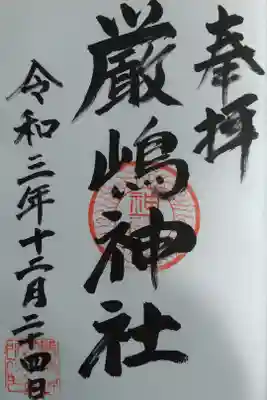 奉拝
厳嶋神社
令和三年十二月二十四日